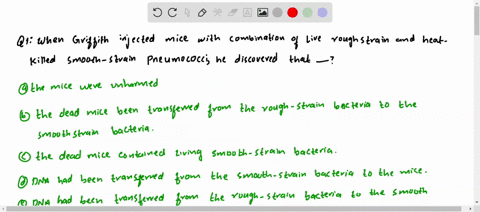 Q1: When Griffith injected mice with combination of live rough strain and heat-
killed smooth-strain pneumococci, he discovered that —?
ⓐ the mice were unharmed
ⓑ the dead mice been transferred from the rough-strain bacteria to the
smooth strain bacteria.
ⓒ the dead mice contained living smooth-strain bacteria.
ⓓ DNA had been transferred from the smooth-strain bacteria to the mice.
ⓔ DNA had been transferred from the rough-strain bacteria to the smooth